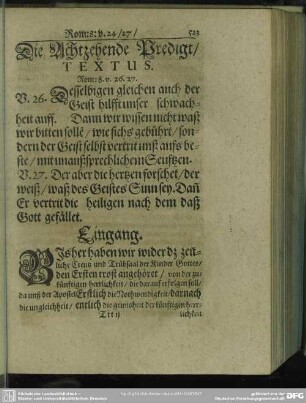 Rom: 8. v. 24/27/ 523
Die Achtzehende Predigt/
TEXTUS.
Rom: 8. v. 26. 27.
V. 26. Desselbigen gleichen auch der
Geist hilfft unser schwach-
heit auff. Dann wir wissen nicht waß
wir bitten solle/ wie sichs gebührt/ son-
dern der Geist selbst vertrit unß auffs be-
ste/ mit unaußsprechlichem Seufftzen.
V. 27. Der aber die hertzen forschet/ der
weiß/ waß des Geistes Sinn sey. Dañ
Er vertrit die heiligen nach dem daß
Gott gefället.
Eingang.
Bisher haben wir wider dz zeit-
liche Creutz und Trübsaal der Kinder Gottes/
den Ersten trost angehört/ von der zu-
künfftigen herrlichkeit/ die darauff erfolgen soll/
da unß der Apostel Erstlich die Nothwendigkeit/ darnach
die ungleichheit/ entlich die gewißheit der künfftigen herr-
Ttt ij lichkeit